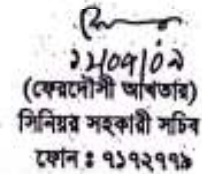 ১২/০৭/০৯
(ফেরদৌসী আখতার)
সিনিয়র সহকারী সচিব
ফোন : ৭১৭২৭৭৯